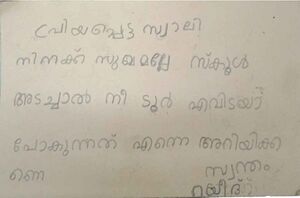 പ്രിയപ്പെട്ട സ്വാലി
നിനക്ക് സുഖമല്ലേ സ്കൂൾ
അടച്ചാൽ നീ ടൂർ എവിടയാ
പോകുന്നത് എന്നെ അറിയിക്ക
ണെ സ്വന്തം